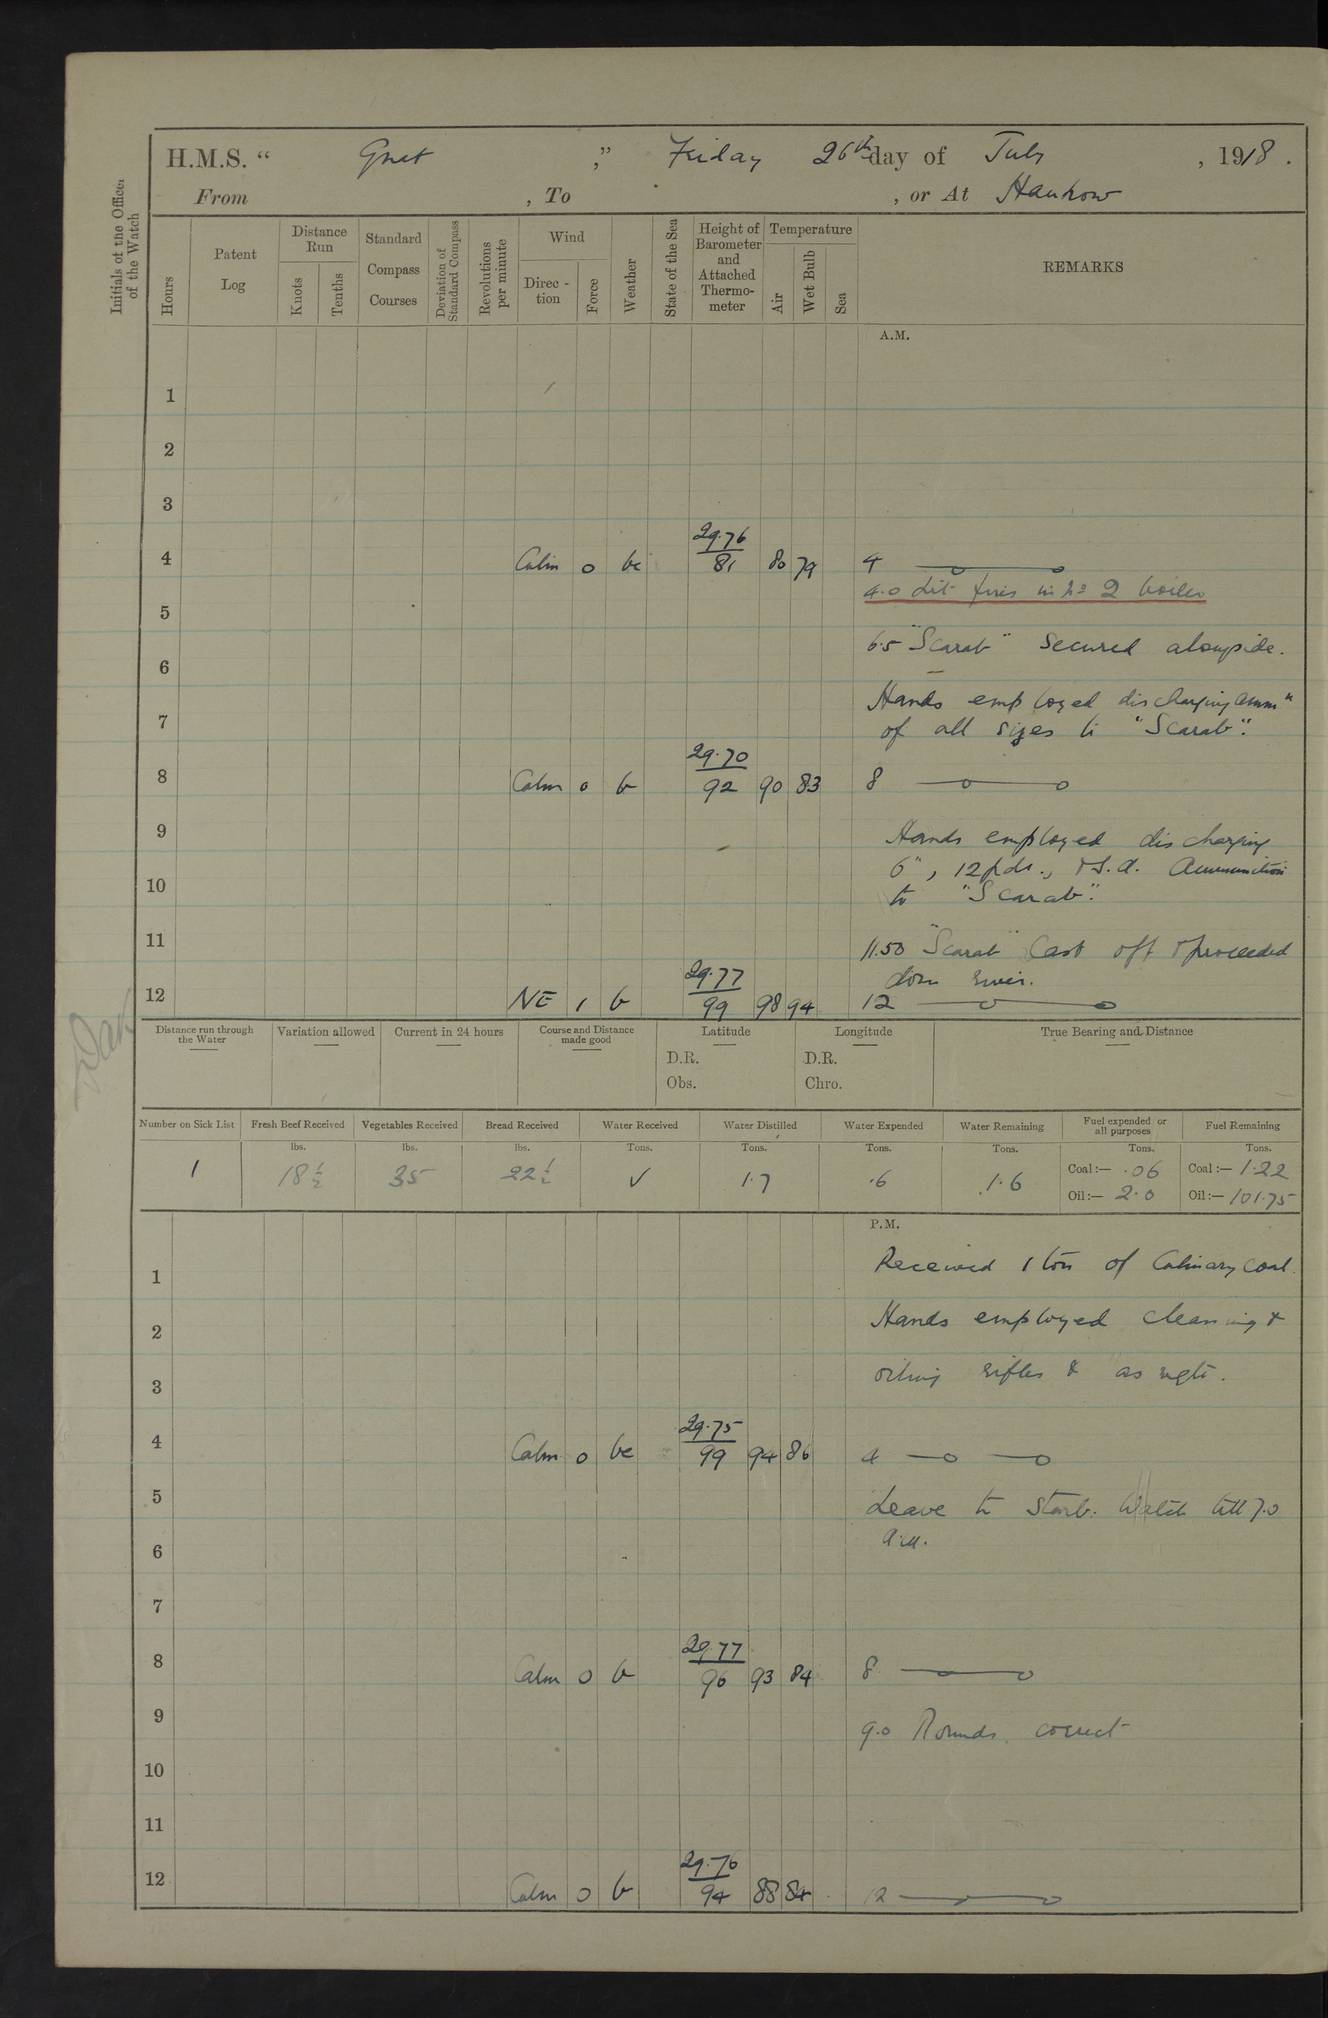 H.M.S. “ Gnat ,” Friday 26th day of July , 1918 .
From , To , or At Hankow
Initials of the Officer of the Watch
Hours
Patent Log
Distance Run
Knots
Tenths
Standard Compass Courses
Deviation of Standard Compass
Revolutions per minute
Wind
Direc - tion
Force
Weather
State of the Sea
Height of Barometer and Attached Thermo- meter
Temperature
Air
Wet Bulb
Sea
REMARKS
A.M.
1
2
3
4 Calm 0 bc 29.76 81 80 79 4
4.0 Lit fires in No 2 boiler
5
6.5 "Scarab" secured alongside.
6
Hands employed discharging ammn
7
of all sizes to "Scarab".
8 Calm 0 b 29.70 92 90 83 8
9
Hands employed discharging
6", 12 pdr., & S.A. Ammunition
10
to "Scarab".
11
11.50 "Scarab" Cast off & proceeded
down river.
12 NE 1 b 29.77 99 98 94 12
Distance run through the Water
Variation allowed
Current in 24 hours
Course and Distance made good
Latitude
D.R.
Obs.
Longitude
D.R.
Chro.
True Bearing and Distance
Number on Sick List Fresh Beef Received Vegetables Received Bread Received Water Received Water Distilled Water Expended Water Remaining Fuel expended or all purposes Fuel Remaining
lbs. lbs. lbs. Tons. Tons. Tons. Tons. Tons. Tons.
1 18 1/2 35 22 1/2 ✓ 1.7 .6 1.6 Coal:— .06 Coal:— 1.22
Oil:— 2.0 Oil:— 101.75
P.M.
Received 1 ton of Culinary coal.
1
Hands employed cleaning &
2
oiling rifles & as reqte.
3
4 Calm 0 bc 29.75 99 94 86 4
5
Leave to Starb. Watch till 7.0
a.m.
6
7
8 Calm 0 b 29.77 96 93 84 8
9
9.0 Rounds correct
10
11
12 Calm 0 b 29.76 94 88 84 12